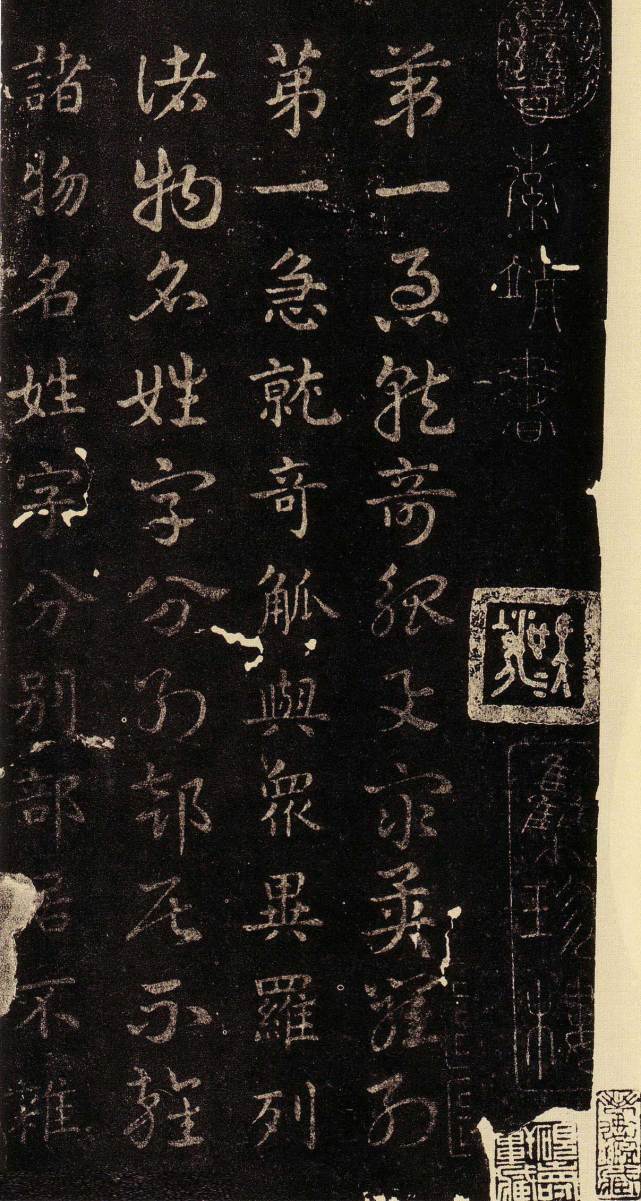 索靖書
第一急就奇觚與衆異羅列
第一急就奇觚與衆異羅列
诸物名姓字分别部居不雜
諸物名姓字分別部居不雜